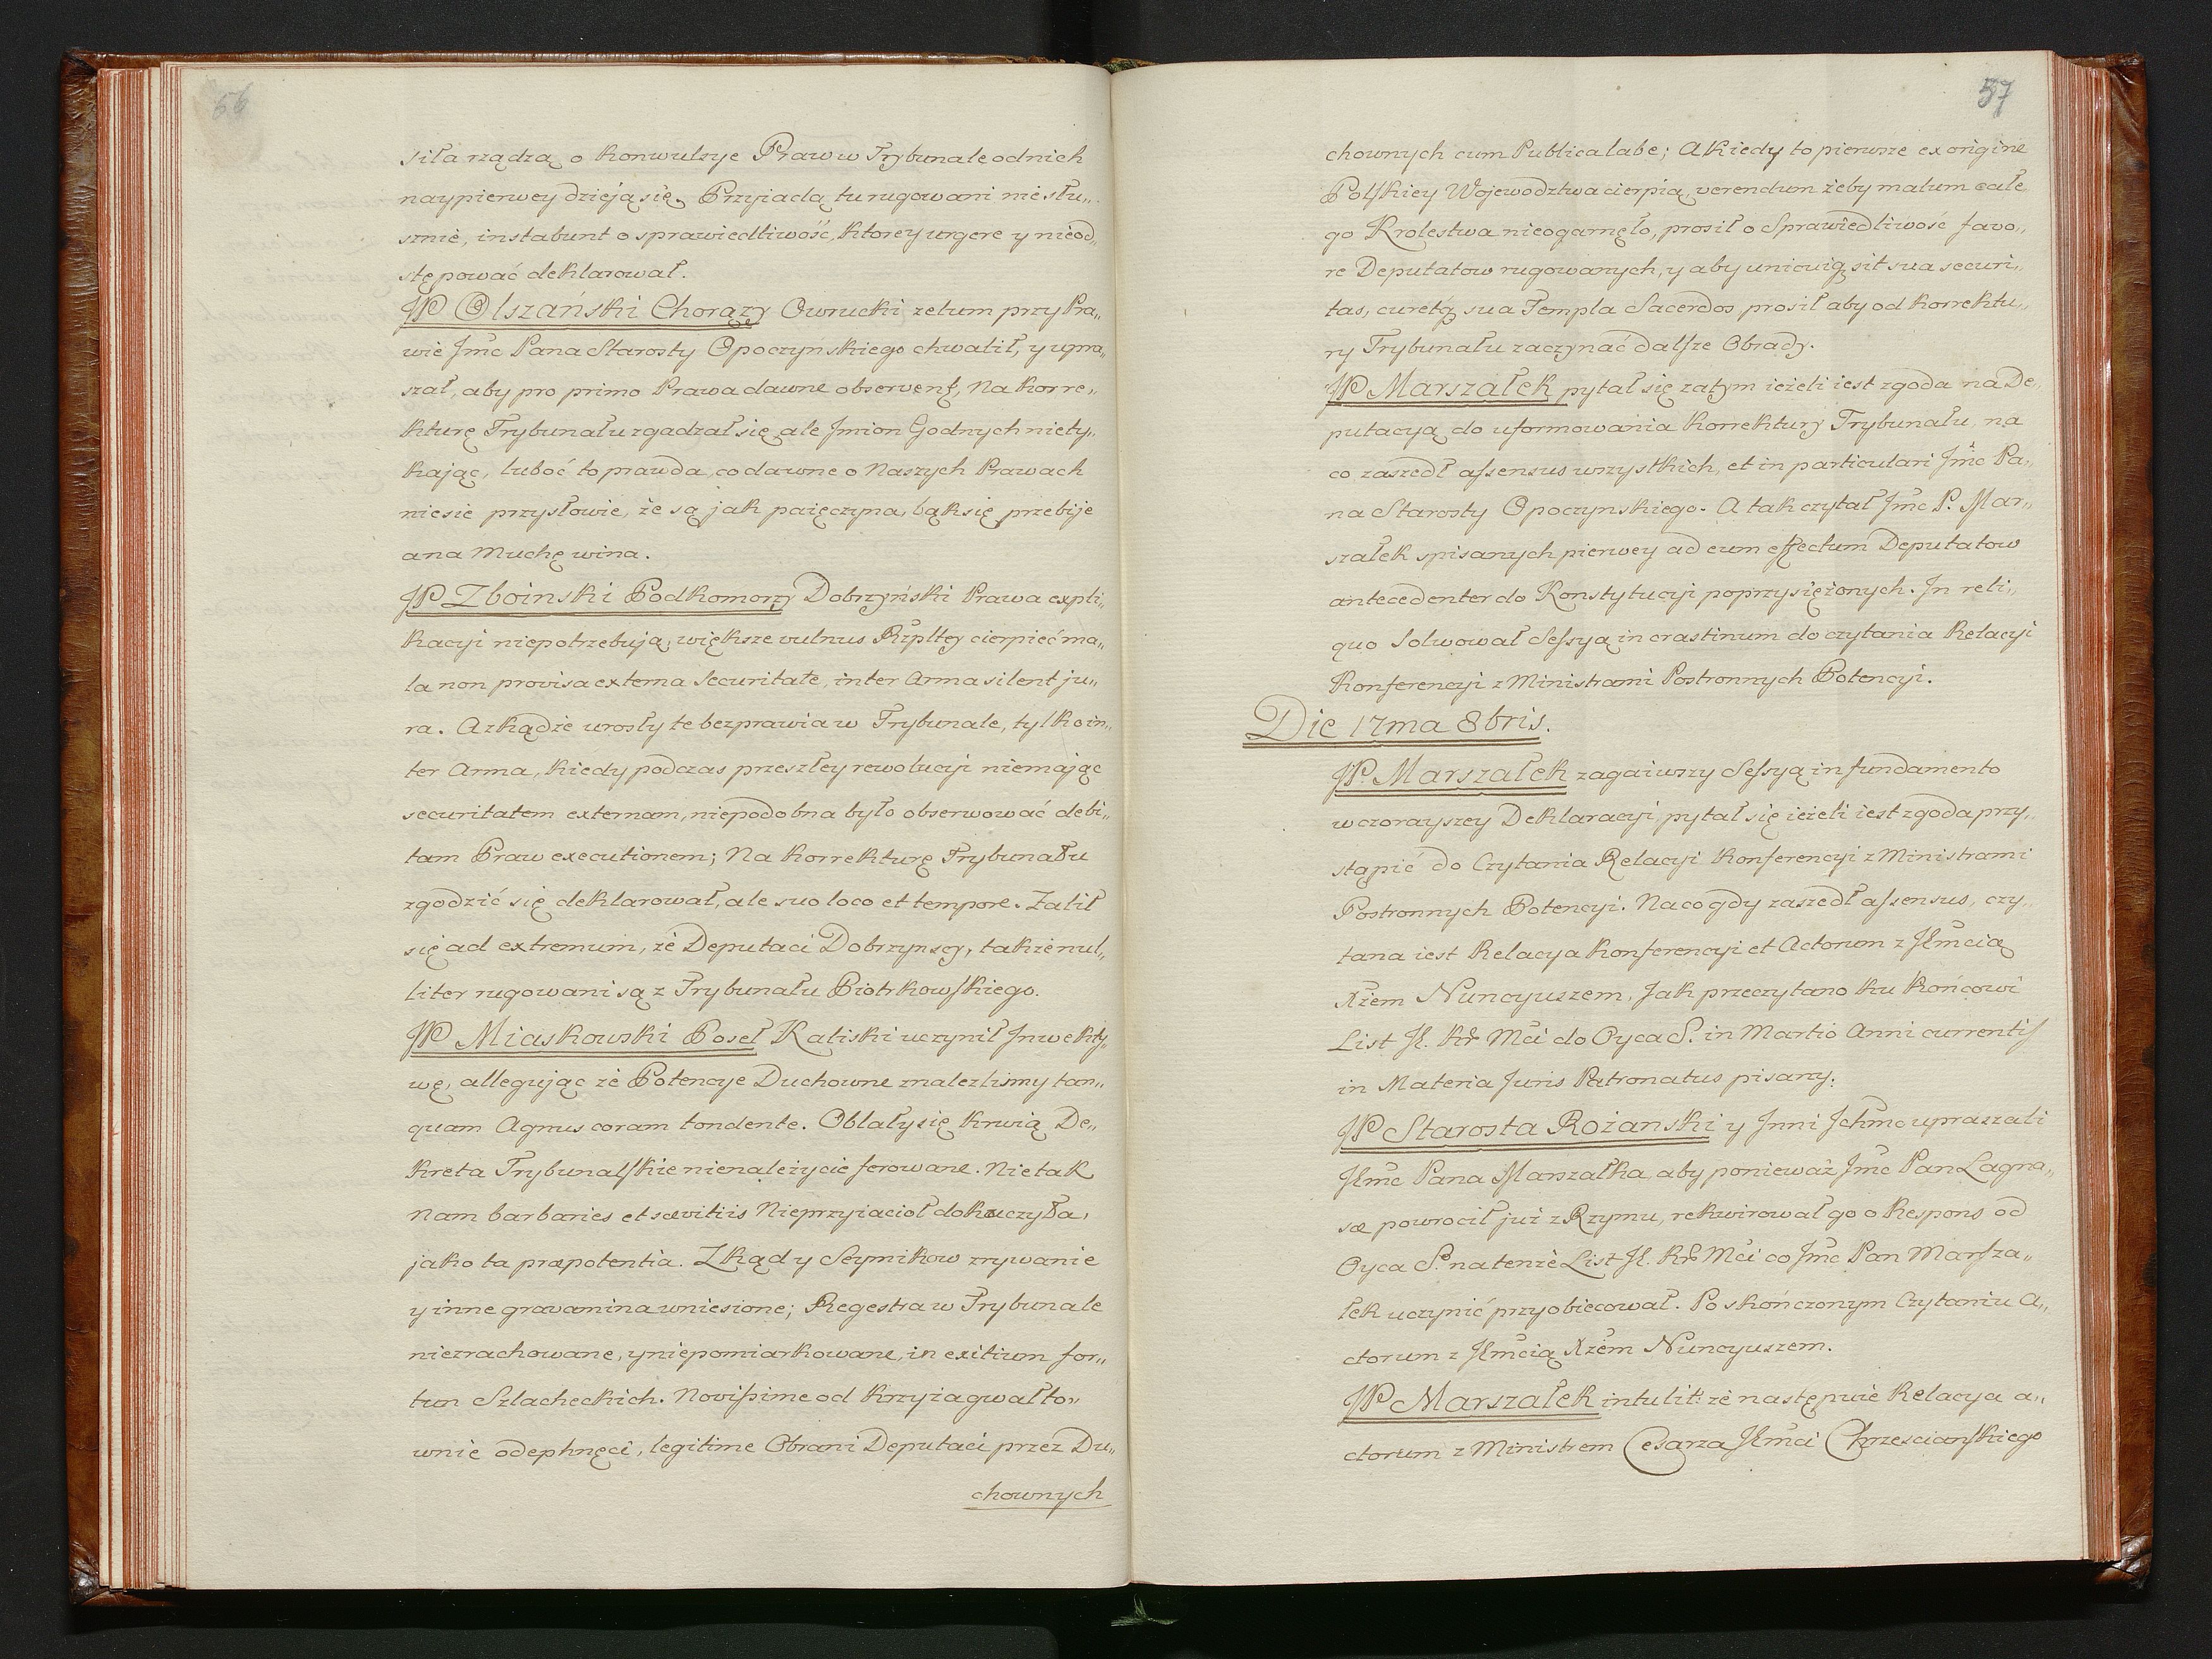 56
siła rządzą o konwulsye Praw w Trybunale od nich
naypierwey dzieją się. Przyiadą tu rugowani niesłu„
sznie, instabunt o sprawiedliwość, ktorey urgere y nieod„
stępować deklarował.
JP Olszański Chorąży Owrucki zelum przy Pra„
wie Jmc Pana Starosty Opoczynskiego chwalił, y upra„
szał, aby pro primo Prawa dawne observent, Na korre„
kturę Trybunału zgadzał się, ale Jmion Godnych niety„
kaiąc, luboć to prawda, co dawne o Naszych Prawach
niesie przysłowie, że są jak paięczyna, bąk się przebije
a na Muchę wina.
JP Zboinski Podkomorzy Dobrzyński Prawa expli„
kacyi niepotrzebują, większe vulnus Rzpltey cierpieć ma„
la non provisa externa Securitate, inter Arma silent ju„
ra. A zkądże urosły te bezprawia w Trybunale, tylko in„
ter Arma, kiedy podczas przeszłey rewolucyi niemając
securitatem externam, niepodobna było obserwować debi„
tam Praw executionem; Na korrekturę Trybunału
zgodzić się deklarował, ale suo loco et tempore. Zalił
się ad extremum, że Deputaci Dobrzynscy, także nul„
liter rugowani są z Trybunału Piotrkowskiego.
JP Miaskowski Poseł Kaliski uczynił Jnwekty„
wę, allegując że Potencye Duchowne znalezlismy tan„
quam Agnus coram tondente. Oblały się krwią De„
kreta Trybunalskie nienależycie ferowane. Nie tak
nam barbaries et sævitiis Nieprzyiacioł dokuczyła,
jako ta præpotentia. Zkąd y Seymikow zrywanie
y inne gravamina wniesione; Regestra w Trybunale
niezrachowane, y niepomiarkowane, in exitium for„
tun Szlacheckich. Novissime od krzyia gwałto„
wnie odephnęci, legitime Obrani Deputaci przez Du„
chownych
57
chownych cum Publica labe; A kiedy to pierwsze ex origine
Polskiey Wojewodztwa cierpią, verendum żeby malum całe„
go Krolestwa nieogarnęło, prosił o Sprawiedliwość favo„
re Deputatow rugowanych, y aby unicuiq sit sua securi„
tas, curetq sua Templa Sacerdos, prosił aby od korrektu„
ry Trybunału zaczynać dalsze Obrady.
JP Marszałek pytał się zatym ieżeli iest zgoda na De„
putacyą do uformowania korrektury Trybunału, na
co zaszedł assensus wszystkich, et in particulari Jmc Pa„
na Starosty Opoczynskiego. A tak czytał Jmc P. Mar„
szałek spisanych pierwey ad eum effectum Deputatow
antecedenter do Konstytucyi poprzysiężonych. In reli„
quo Solwował Sessyą in crastinum do czytania Relacyi
Konferencyi z Ministrami Postronnych Potencyi.
Die 17ma 8bris.
JP. Marszałek zagaiwszy Sessyą in fundamento
wczorayszey Deklaracyi, pytał się ieżeli iest zgoda przy„
stąpić do Czytania Relacyi Konferencyi z Ministrami
Postronnych Potencyi. Na co gdy zaszedł assensus, czy„
tana iest Relacya Konferencyi et Actorum z JEmcią
Xżem Nuncyuszem. Jak przeczytano ku końcowi
List Jk. Kr Mci do Oyca S. in Martio Anni currentis
in Materia Juris Patronatus pisany.
JP Starosta Rożanski y Jnni Jchmc upraszali
JEmc Pana Marszałka, aby ponieważ Jmc Pan Lagna„
sæ powrocił już z Rzymu, rekwirował go o Respons od
Oyca S. na tenże List Jk. Kr Mci co Jmc Pan Marsza„
łek uczynić przyobiecował. Po skończonym Czytaniu A„
ctorum z JEmcią Xżem Nuncyuszem.
JP Marszałek intulit: że następuie Relacya a„
ctorum z Ministrem Cesarza JEmci Chrzescianskiego